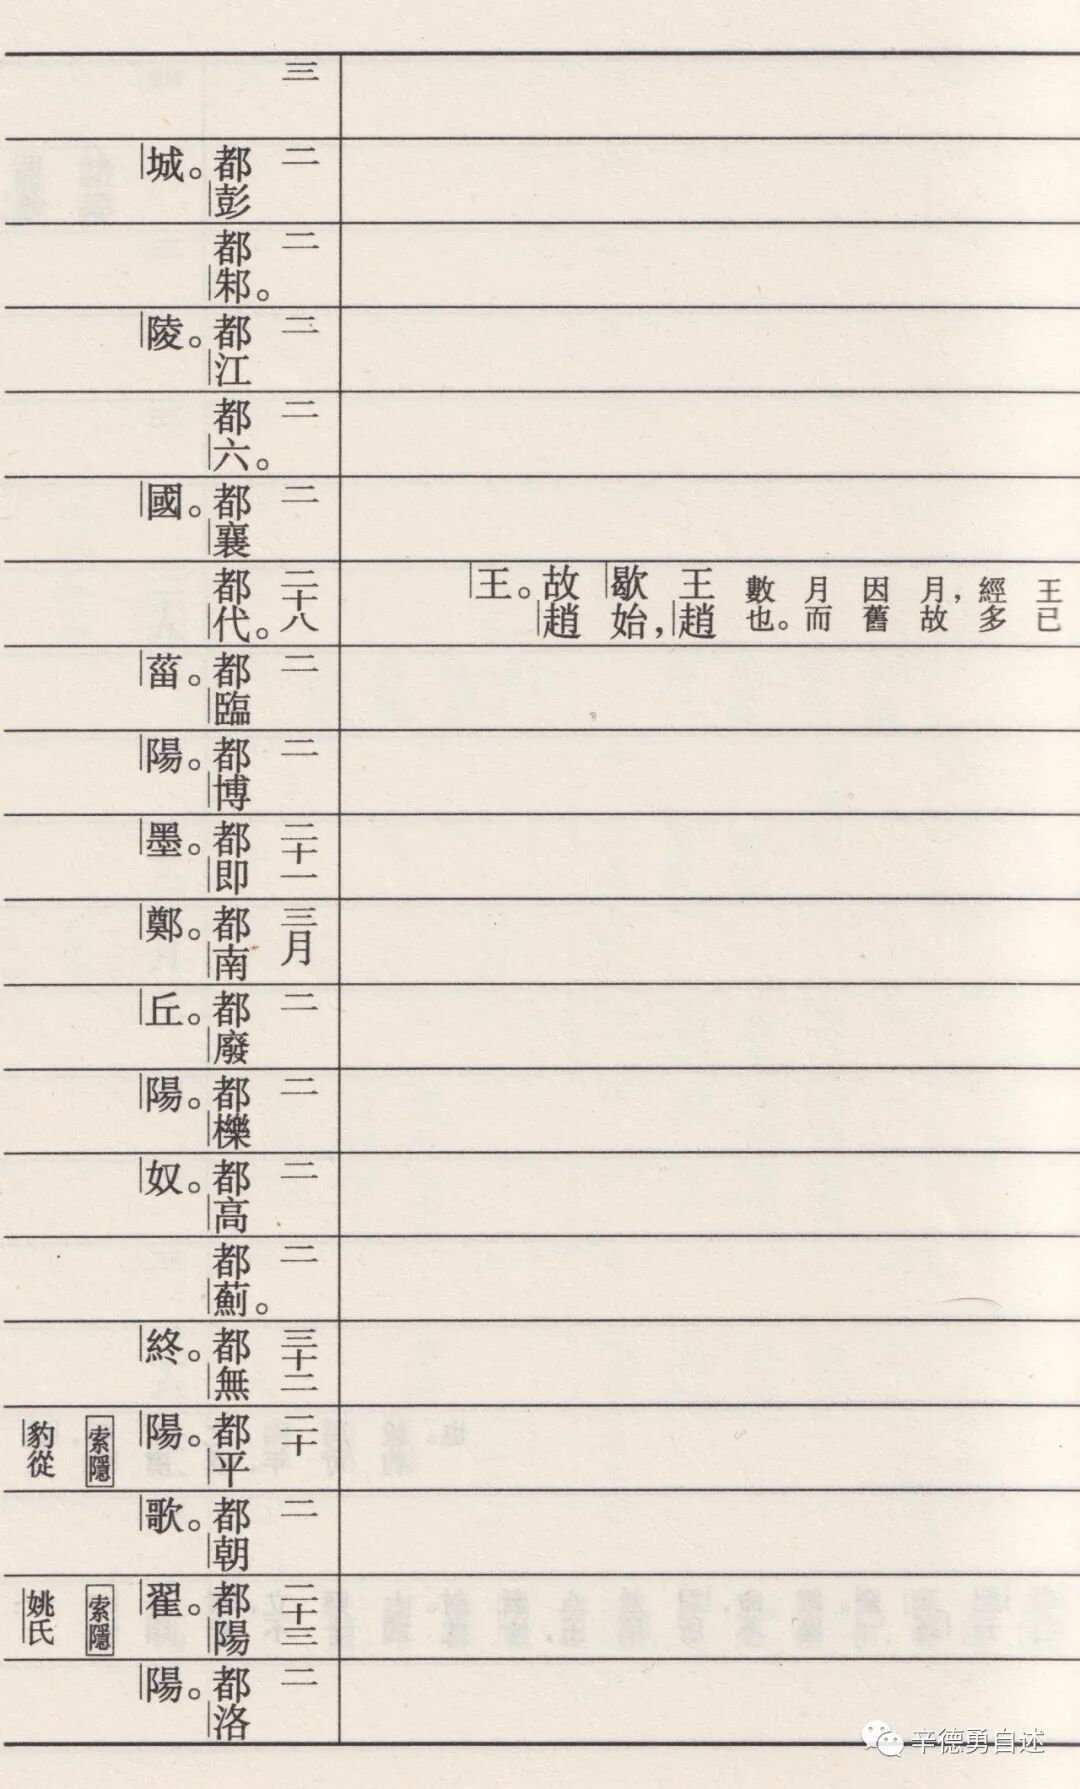 王已
經多
月,故
因舊
月而
數也。
王趙
歇始,
故趙
王。
三
二
都彭
城。
二
都邾。
二
都江
陵。
二
都六。
二
都襄
國。
二十八
都代。
二
都臨
菑。
二
都博
陽。
二十一
都即
墨。
三月
都南
鄭。
二
都廢
丘。
二
都櫟
陽。
二
都高
奴。
二
都薊。
三十二
都無
終。
二十
都平
陽。
索隱
豹從
二
都朝
歌。
二十三
都陽
翟。
索隱
姚氏
二
都洛
陽。
辛德勇自述